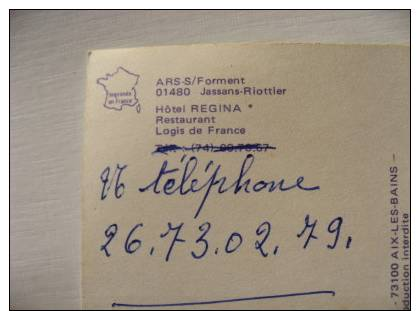 Imprimée
en France
ARS-S/Forment
01480 Jassans-Riottier
Hôtel REGINA *
Restaurant
Logis de France
téléphone
26.73.02.79.
- 73100 AIX-LES-BAINS -
oduction interdite